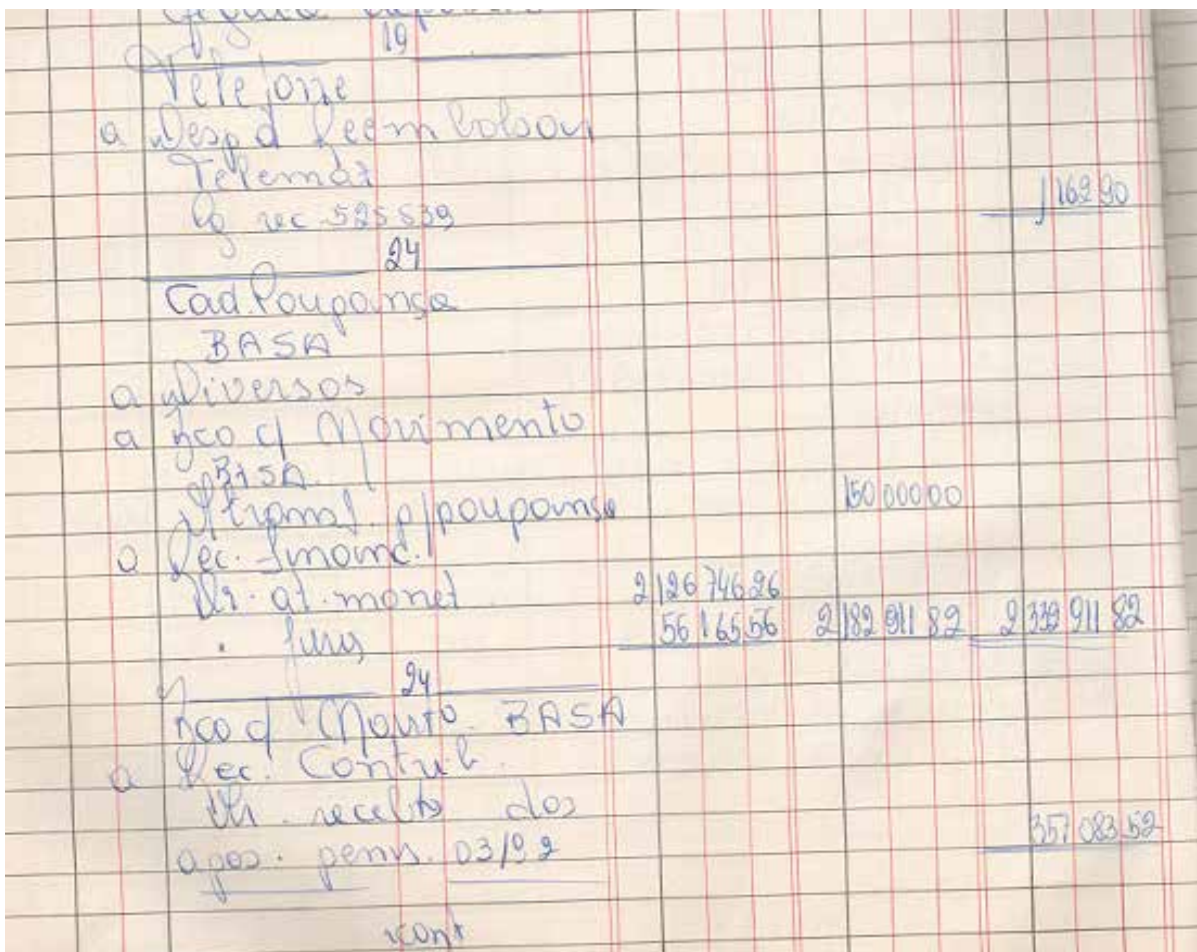 19
Telefone
a Desp d Reembolsou
Telemat
Pg rec 525539 1 162 90
24
Cad. Poupança
BASA
a Diversos
a Bco c/ Movimento
BASA
Vr transf. p/poupança 150 000 00
a Rec. Financ.
Vr. at. monet 2 126 746 26
" Juros 56 165 56 2 182 911 82 2 332 911 82
24
Bco c/ Movto BASA
a Rec. Contrib.
Vr. recebto dos
apos. pens. 03/92 357 083 52
cont